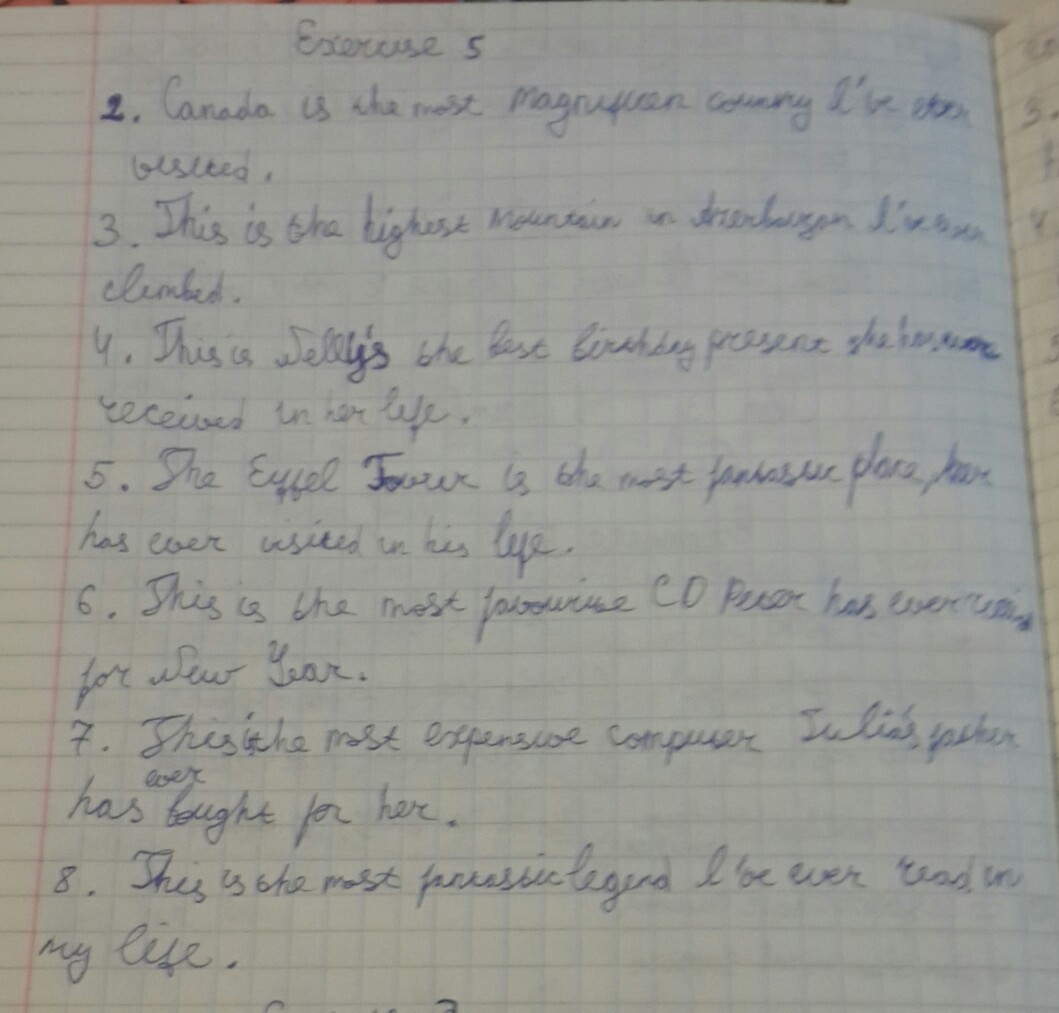 Exercise 5
2. Canada is the most magnificen country I've ever
visited.
3. This is the highest mountain in Azerbaijan I've ever
climbed.
4. This is Nelly's the best birthday present she has ever
received in her life.
5. The Eyffel Tower is the most fantastic place,
has ever visited in his life.
6. This is the most favourite CD has ever
for New Year.
7. This is the most expensive computer Julia's father
ever
has bought for her.
8. This is the most fantastic legend I've ever read in
my life.